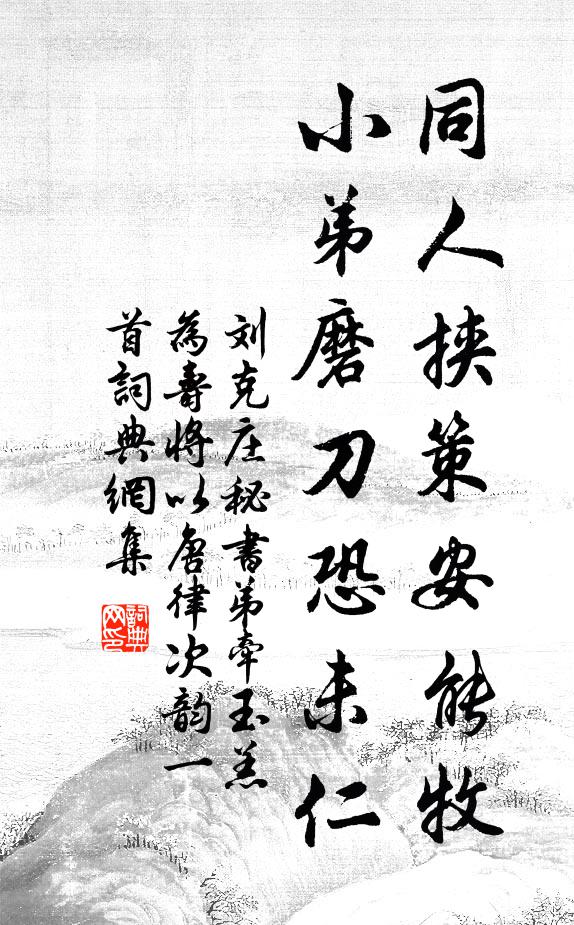 同人挾策安能牧
小弟磨刀恐未仁
刘克庄秘書弟牵玉羔
為壽將以唐律次韵一
首詞典網集
詞典
网印